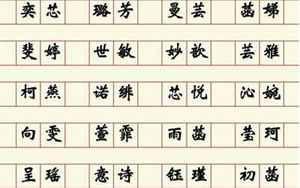 奕芯 璐芳 曼芸 菡娣
斐婷 世敏 妙歆 芸雅
柯燕 诺绯 芯悦 沁婉
向雯 萱霏 雨菡 莹珂
呈瑶 意诗 钰瑾 初菡